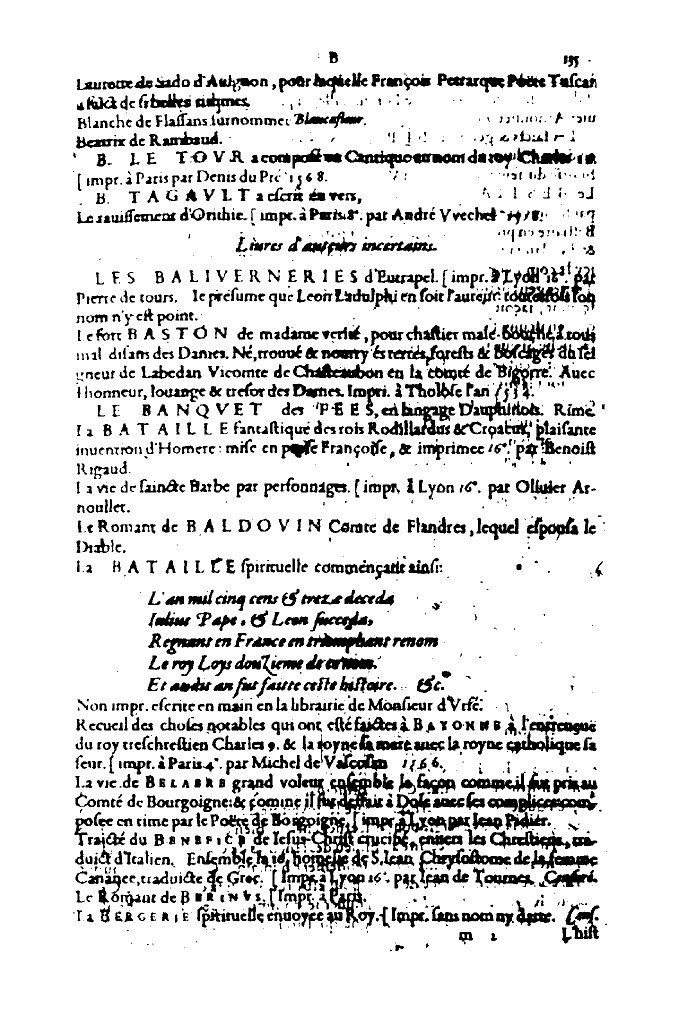 B 135
Laurette de Sado d'Auignon, pour laquelle François Petrarque Poëte Tuscan
a faict de si belles rithmes.
Blanche de Flassans surnommee Blancafleur.
Beatrix de Rambaud.
B. LE TOVR a composé vn Cantique au nom du roy Charles 10.
[impr. à Paris par Denis du Pré 1568.
B. TAGAVLT a escrit en vers,
Le rauissement d'Orithie. [impr. à Paris 8°. par André Vvechel 1558.
Liures d'auteurs incertains.
LES BALIVERNERIES d'Eutrapel. [impr. à Lyon 16°. par
Pierre de tours. Ie presume que Leon Ladulphi en soit l'auteur: toutesfois son
nom n'y est point.
Le fort BASTON de madame verité, pour chastier male-bouche, à tous
mal disans des Dames. Né, trouué & nourry és terres, forests & boscages du sei
gneur de Labedan Vicomte de Chasteaubon en la comté de Bigorre. Auec
l'honneur, louange & tresor des Dames. Impri. à Tholose l'an 1534.
LE BANQVET des FEES, en langage Dauphinois. Rime.
La BATAILLE fantastique des rois Rodillardus & Croacus, plaisante
inuention d'Homere: mise en prose Françoise, & imprimee 16°. par Benoist
Rigaud.
La vie de saincte Barbe par personnages. [impr. à Lyon 16°. par Oliuier Ar-
noullet.
Le Romant de BALDOVIN Comte de Flandres, lequel espousa le
Diable.
La BATAILLE spirituelle commençant ainsi:
L'an mil cinq cens & treze deceda
Iulius Pape, & Leon succeda,
Regnant en France en triumphant renom
Le roy Loys douzieme de ce nom.
Et audit an fut faitte ceste histoire. &c.
Non impr. escrite en main en la librairie de Monsieur d'Vrfé.
Recueil des choses notables qui ont esté faictes à BAYONNE à l'entreueue
du roy treschrestien Charles 9. & la royne sa mere auec la royne catholique sa
seur. [impr. à Paris 4°. par Michel de Vascosan 1566.
La vie de BELABRE grand voleur ensemble la façon comme il fut pris au
Comté de Bourgoigne: & comme il fut deffait à Dole auec ses complices com-
posee en rime par le Poëte de Bourgoigne. [impr. à Lyon par Iean Pidier.
Traicté du BENEFICE de Iesus-Christ crucifié, enuers les Chrestiens, tra-
duict d'Italien. Ensemble la 16. homelie de S. Iean Chrysostome de la femme
Cananee, traduicte de Grec. [Impr. à Lyon 16°. par Iean de Tournes. Censuré.
Le Romant de BERINVS. [Impr. à Paris.
La BERGERIE spirituelle enuoyee au Roy. [Impr. sans nom ny datte. Cens.
m 2 L'hist